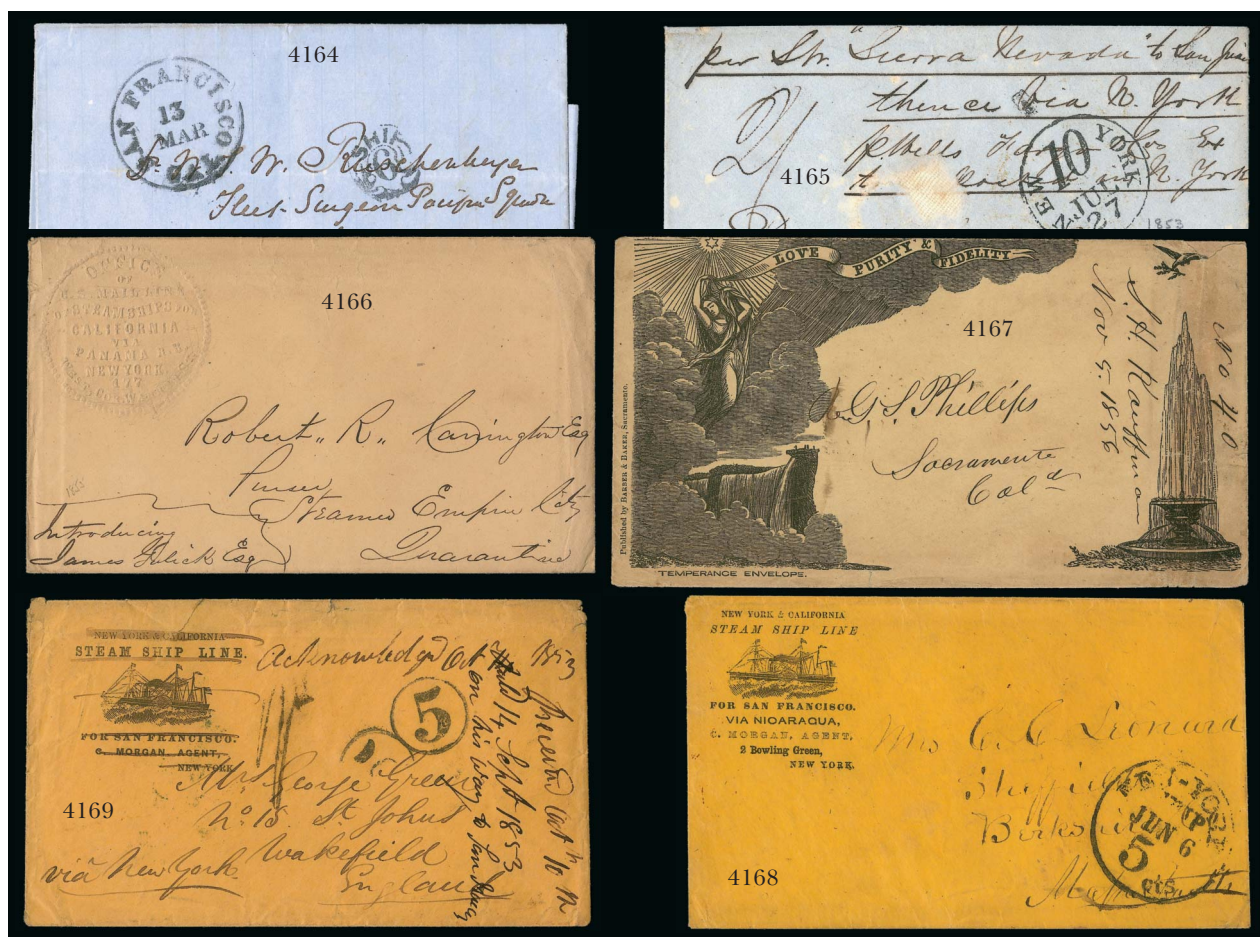 4164
SAN FRANCISCO
13
MAR
W. S. W. Ruschenberger
SHIP
6
Fleet Surgeon Pacific Squdn
per Str. "Sierra Nevada" to San Juan
thence via N. York
2/
p Wells Co's Ex
4165
N. York
NEW YORK
10
JUL
27
1853
OFFICE
OF
U.S. MAIL LINE
OF STEAMSHIPS TO
CALIFORNIA
VIA
PANAMA R.R.
NEW YORK
177
4166
Robert R. Carrington Esq
Purser
Steamer Empire City
Quarantine
1853
Introducing
James Esq
LOVE PURITY & FIDELITY
4167
G. S. Phillips
Sacramento
Cal
S. H. Kauffman
Nov 5. 1856
No 40
Published by BARBER & BAKER, Sacramento.
TEMPERANCE ENVELOPE.
NEW YORK & CALIFORNIA
STEAM SHIP LINE.
FOR SAN FRANCISCO.
C. MORGAN, AGENT,
NEW YORK
Acknowledged Oct 1853
5
14 Sept 1853
on his way to San
4169
Mrs George Green
No 15. St Johns
Wakefield
England
via New York
NEW YORK & CALIFORNIA
STEAM SHIP LINE
FOR SAN FRANCISCO.
VIA NICARAGUA,
C. MORGAN, AGENT,
2 Bowling Green,
NEW YORK.
Mrs C. C. Leonard
Sheffield
Berkshire
NEW-YORK
SHIP
JUN 6
5
cts
4168